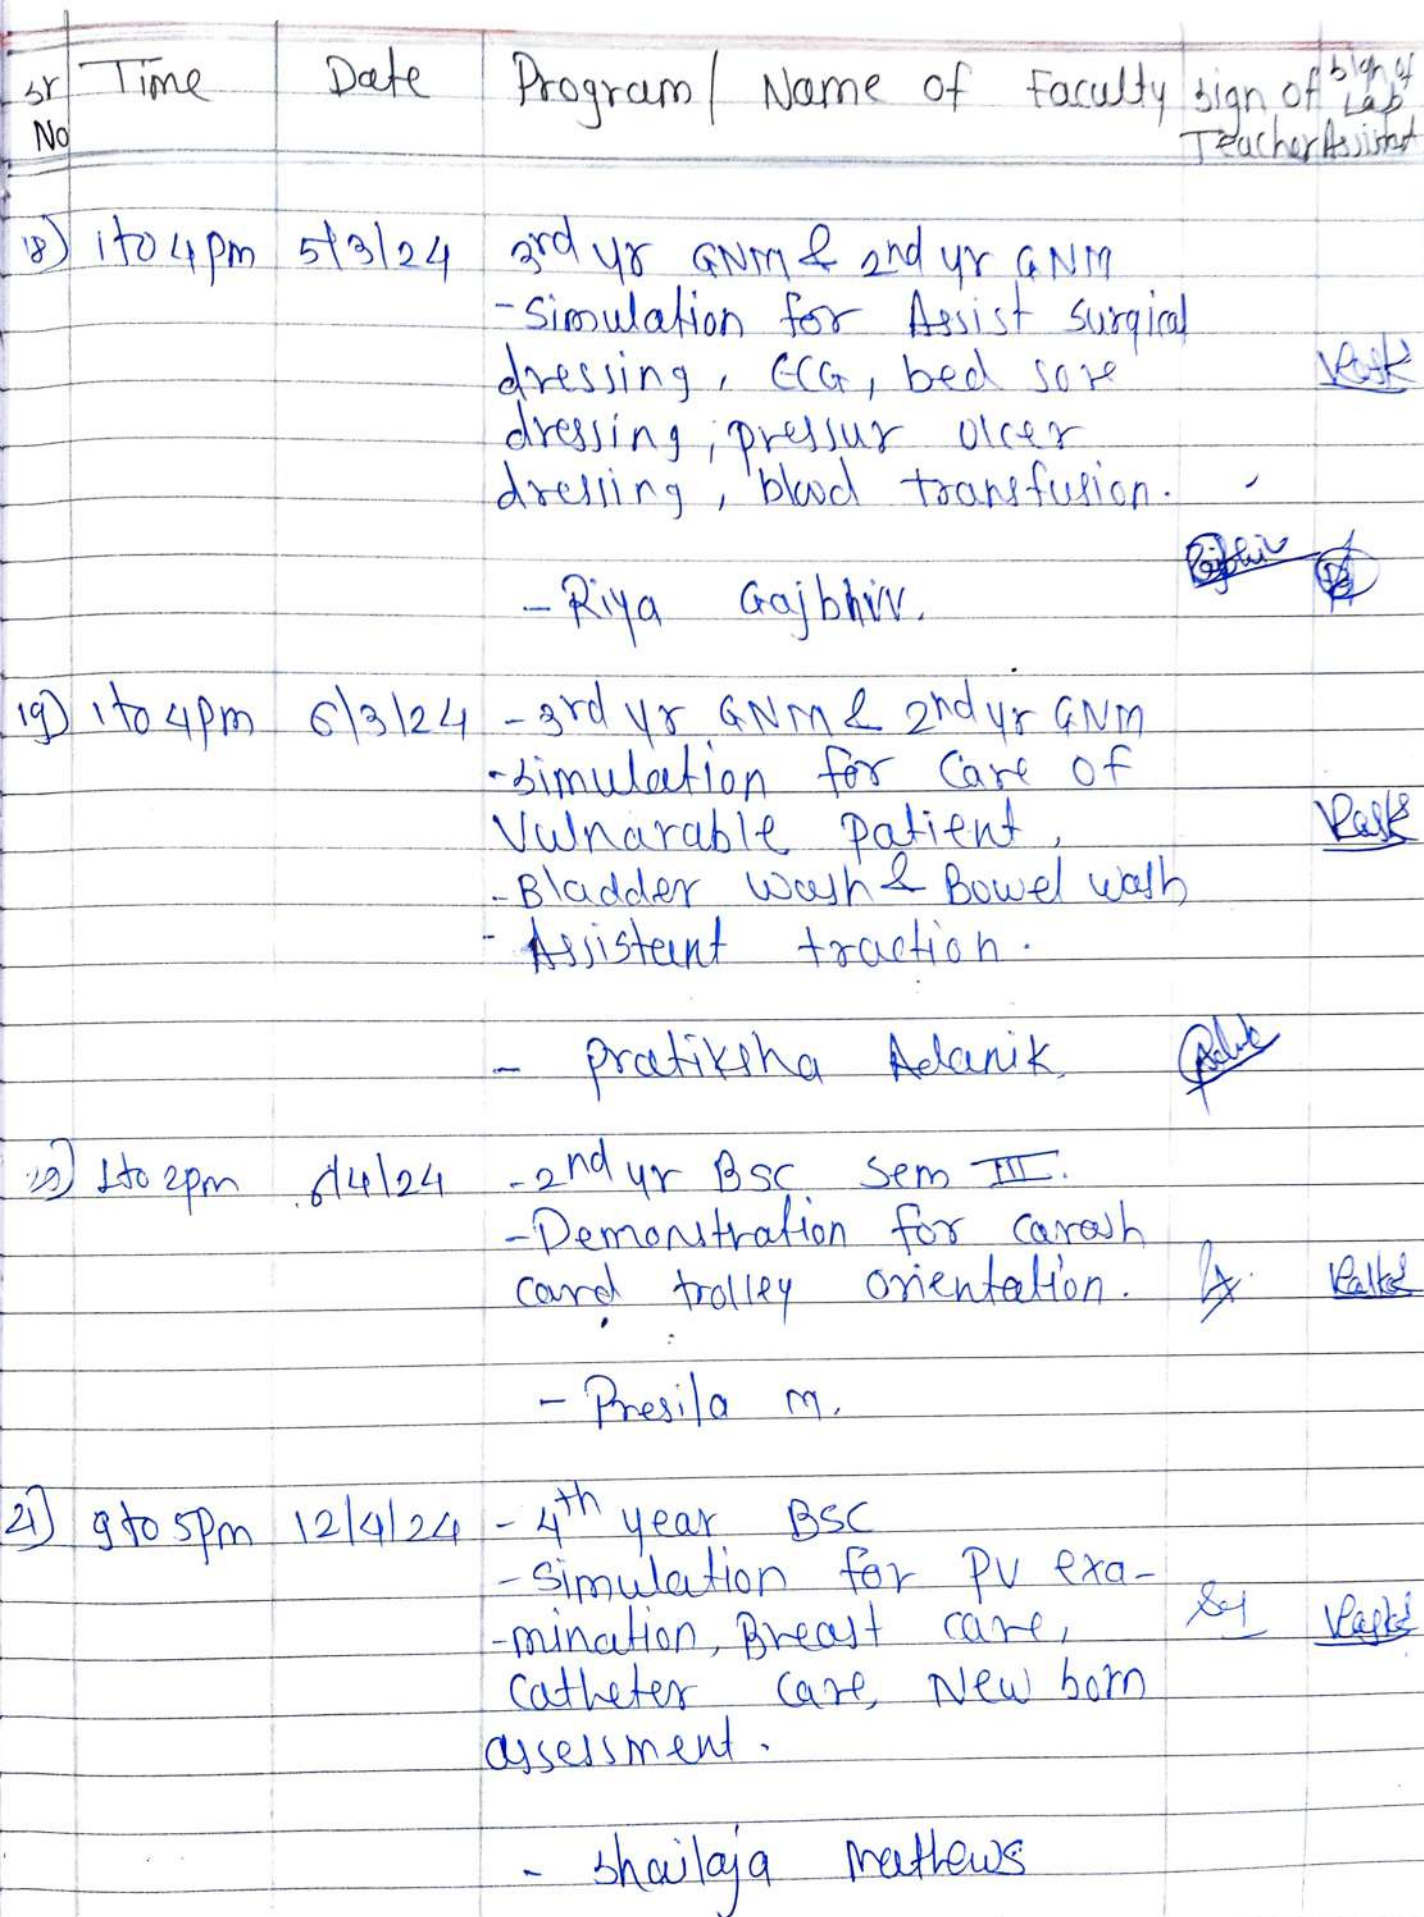 Sr No Time Date Program/ Name of Faculty Sign of Teacher Sign of Lab Assistant
18) 1 to 4 pm 5/3/24 3rd yr GNM & 2nd yr GNM
- Simulation for Assist surgical
dressing, ECG, bed sore
dressing, pressur ulcer
dressing, blood transfusion.
- Riya Gajbhiv.
19) 1 to 4 pm 6/3/24 - 3rd yr GNM & 2nd yr GNM
- simulation for Care of
Vulnarable patient,
- Bladder wash & Bowel wash
- Assistant traction.
- pratiksha Adanik.
1 to 2 pm 6/4/24 - 2nd yr BSC Sem III.
- Demonstration for carash
card trolley orientation.
- Presila M.
21) 9 to 5 pm 12/4/24 - 4th year BSC
- Simulation for PV exa-
-mination, Breast care,
Catheter care, New born
assessment.
- Shailaja Mathews